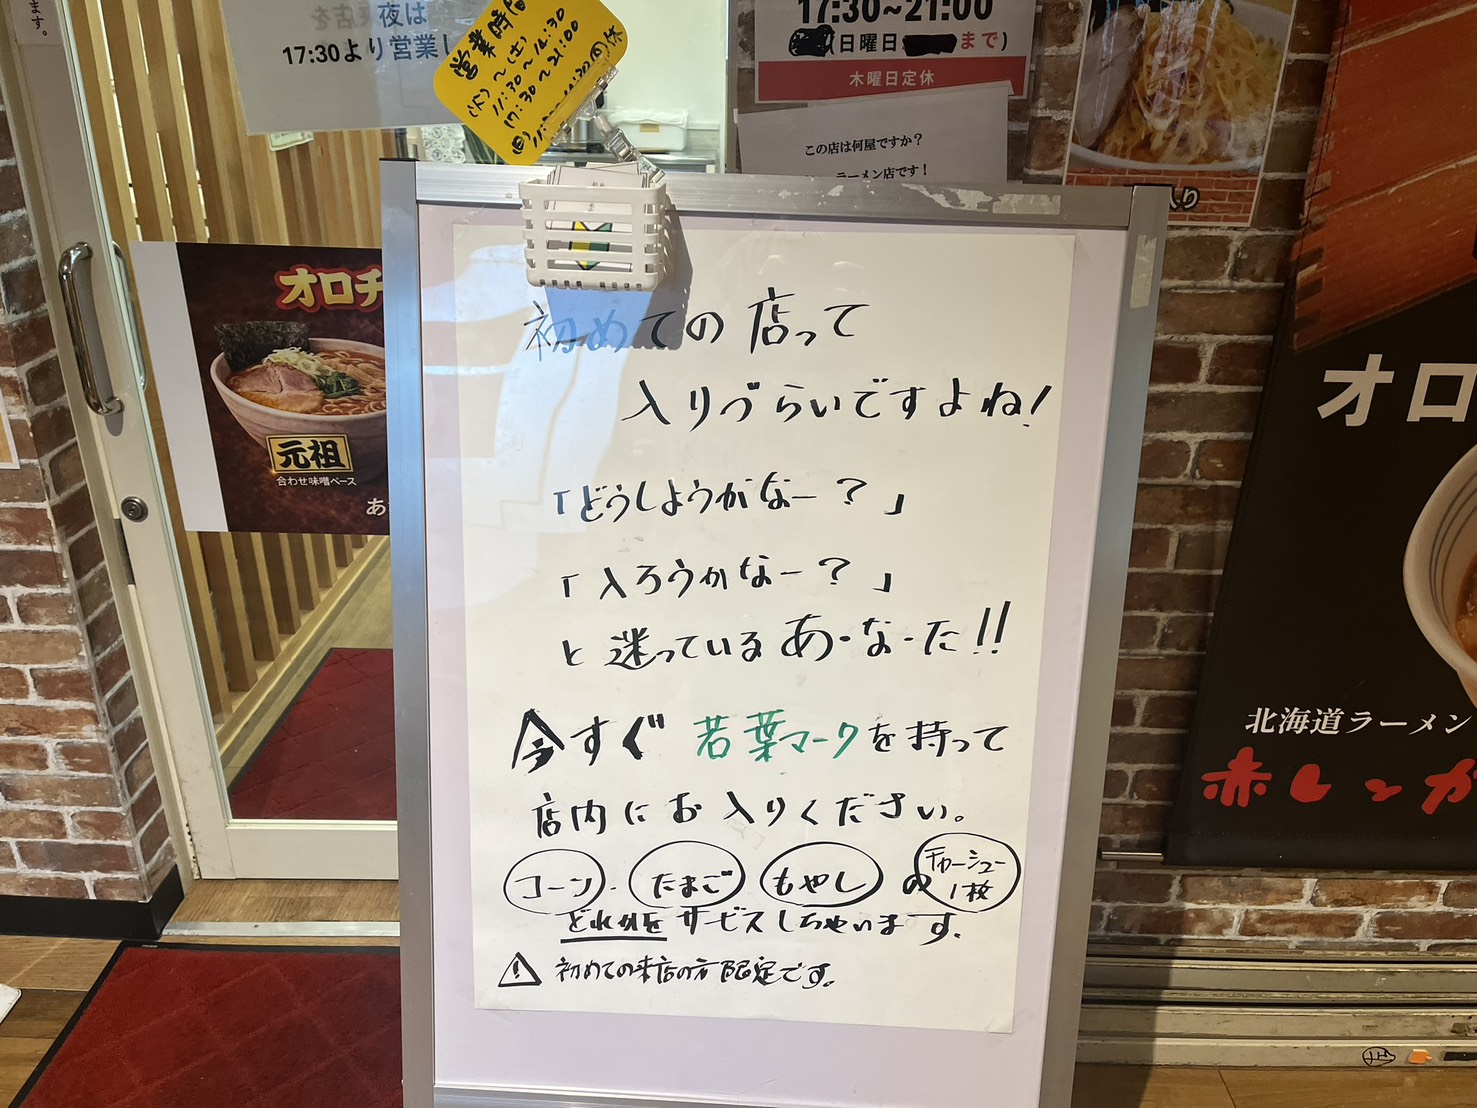 ます。
夜は
17:30より営業し
営業時間
(火)~(土)
11:30~14:30
17:30~21:00
17:30~21:00
(日曜日
まで)
木曜日定休
この店は何屋ですか?
ラーメン店です!
入り
オロチ
元祖
合わせ味噌ベース
あ
初めての店って
入りづらいですよね!
「どうしようかなー?」
「入ろうかなー?」
と迷っているあ・な・た!!
今すぐ若葉マークを持って
店内にお入りください。
コーン・たまご・もやし の チャーシュー1枚
どれかをサービスしちゃいます。
⚠ 初めての来店の方限定です。
オロ
北海道ラーメン
赤レンガ